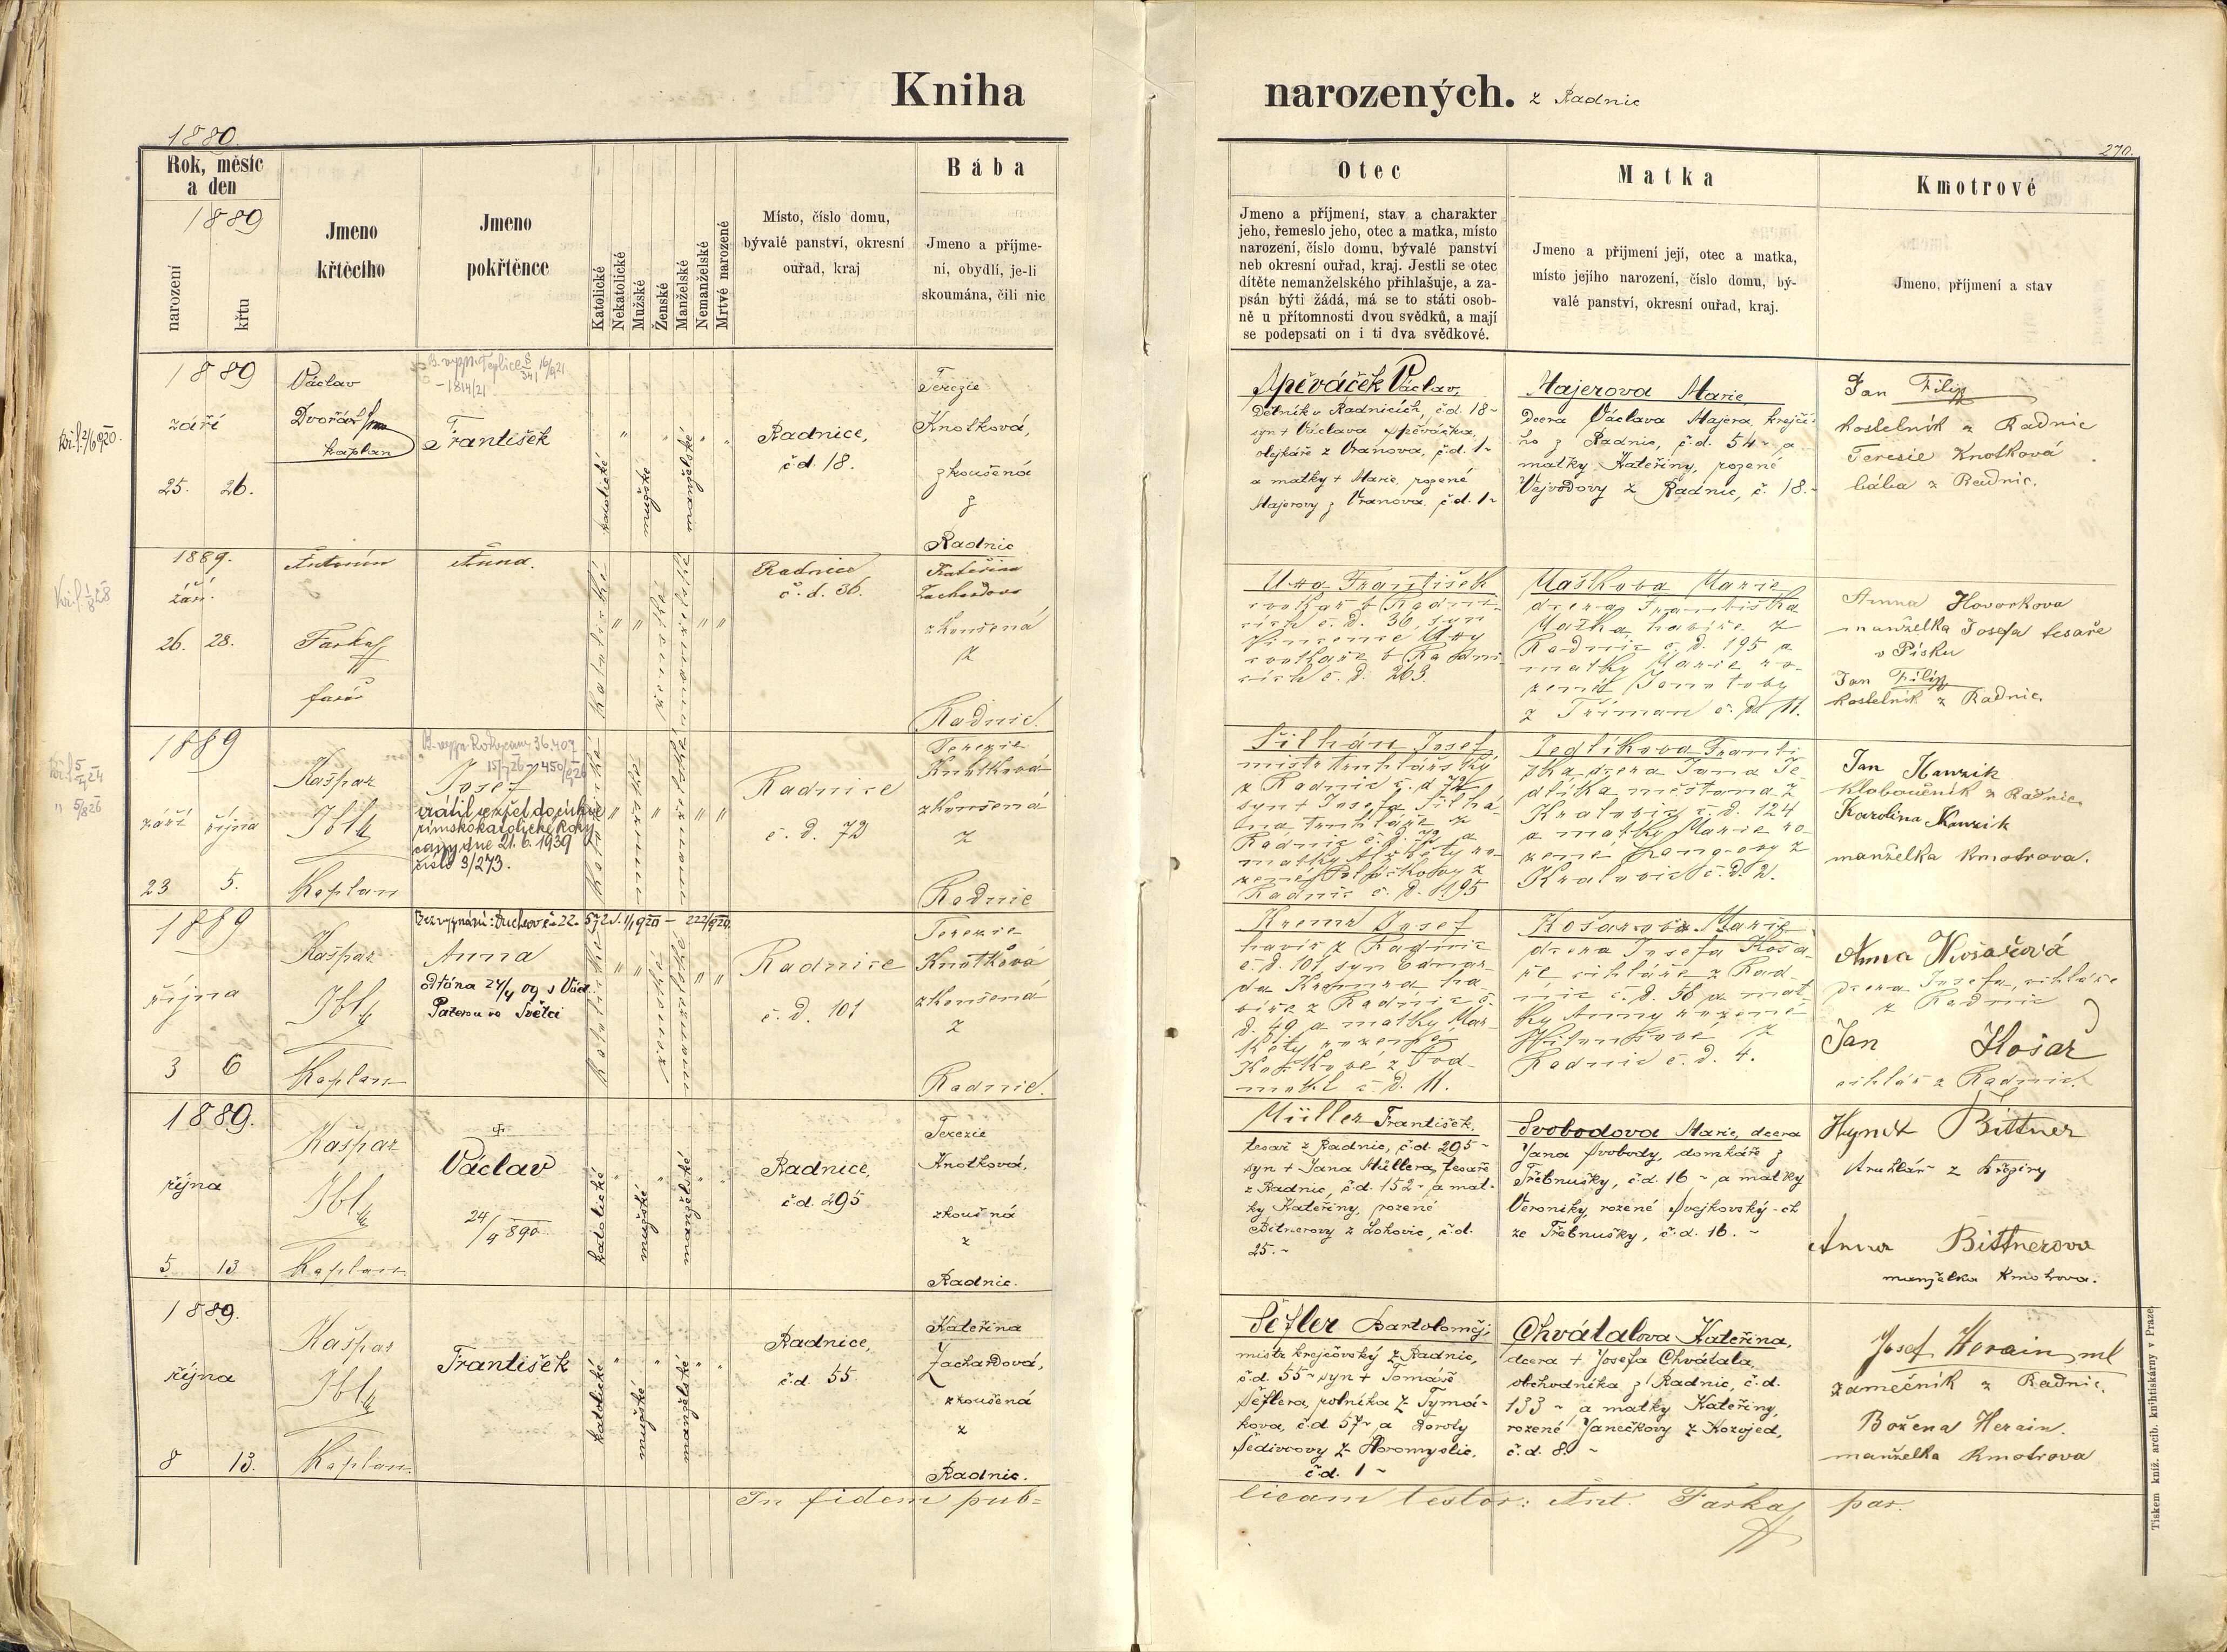 Kniha
narozených. z Radnic
1880.
270.
Rok, měsíc
a den
1889
narození
křtu
Jmeno
křtěcího
Jmeno
pokřtěnce
Katolické
Nekatolické
Mužské
Ženské
Manželské
Nemanželské
Mrtvě narozené
Místo, číslo domu,
bývalé panství, okresní
ouřad, kraj
Bába
Jmeno a příjme-
ní, obydlí, je-li
skoumána, čili nic
Otec
Jmeno a příjmení, stav a charakter
jeho, řemeslo jeho, otec a matka, místo
narození, číslo domu, bývalé panství
neb okresní ouřad, kraj. Jestli se otec
dítěte nemanželského přihlašuje, a za-
psán býti žádá, má se to státi osob-
ně u přítomnosti dvou svědků, a mají
se podepsati on i ti dva svědkové.
Matka
Jmeno a přijmení její, otec a matka,
místo jejího narození, číslo domu, bý-
valé panství, okresní ouřad, kraj.
Kmotrové
Jmeno, příjmení a stav
1889
září
25. 26.
Václav
Dvořák
kaplan
František
katolické
mužské
manželské
Radnice,
č.d. 18.
Terezie
Knotková,
zkoušená
z
Radnic
Spěváček Václav,
Dělník v Radnicích, č.d. 18 -
syn + Václava Spěváčka,
olejkáře z Vranova, č.d. 1 -
a matky + Marie, rozené
Majerovy z Vranova, č.d. 1 -
Majerova Marie,
Dcera Václava Majera, krejčí-
ho z Radnic, č.d. 54 - a
matky Kateřiny, rozené
Vejvodovy z Radnic, č. 18. -
Jan Filip
kostelník z Radnic
Teresie Knotková
bába z Radnic.
1889.
září.
26. 28.
Antonín
Farka
farář
Anna.
katolické
ženské
manželské
Radnice
č. d. 36.
Kateřina
Zachardova
zkoušená
z
Radnic.
Utta František
Radni-
cích č. d. 36, syn
Vincence Utty
v Radni-
cích č. d. 263.
Maškova Marie
dcera Františka
Maška, havíře z
Radnic č. d. 195 a
matky Marie ro-
zené
z Tříman č. d. 11.
Anna Hovorkova
manželka Josefa tesaře
v Písku
Jan Filip
kostelník z Radnic.
1889
září října
23 5.
Kašpar
Ibl
Kaplan
Josef
vrátil se zpět do církve
římskokatolické Roky-
cany dne 21. 6. 1939
číslo 3/273.
katolické
mužské
manželské
Radnice
č. d. 72
Terezie
Knotková
zkoušená
z
Radnic
Šilhán Josef
mistr truhlářský
z Radnic č. d. 72
syn + Josefa Šilhá-
na, truhláře z
Radnic č. d. 72 a
matky Alžběty ro-
zené z
Radnic č. d. 195
Zedlíkova Franti-
ška, dcera Jana Ze-
dlíka měšťana z
Kralovic č. d. 124
a matky Marie ro-
zené z
Kralovic č. d. 2.
Jan Kanzik
kloboučník z Radnic
Karolina Kanzik
manželka kmotrova.
1889
října
3 6
Kašpar
Ibl
Kaplan
Anna
oddána 24/4 09 s Václ.
Pateron ve Světci
katolické
ženské
manželské
Radnice
č. d. 101
Terezie
Knotková
zkoušená
z
Radnic.
Kremr Josef
havíř z Radnic
č. d. 101 syn Eduar-
da Kremra, ha-
víře z Radnic č.
d. 49 a matky Mar-
kéty rozené
z Pod-
mokl č. d. 11.
Košařova Marie
dcera Josefa Koša-
ře cihláře z Rad-
nic č. d. 56 a mat-
ky Anny rozené
z
Radnic č. d. 4.
Anna Košařová
dcera Josefa, cihláře
z Radnic
Jan Košař
cihlář z Radnic.
1889.
října
5 13
Kašpar
Ibl
Kaplan.
Václav
24/4 890.
katolické
mužské
manželské
Radnice,
č.d. 295
Terezie
Knotková,
zkoušná
z
Radnic.
Müller František,
tesař z Radnic, č.d. 295 -
syn + Jana Müllera, tesaře
z Radnic, č.d. 152 - a mat-
ky Kateřiny, rozené
Bitnerovy z Lohovic, č.d.
25. -
Svobodova Marie, dcera
Jana Svobody, domkáře z
Třebnušky, č.d. 16 - a matky
Veroniky, rozené Svejkovský-ch
ze Třebnušky, č.d. 16. -
Hynek Bittner
truhlář z
Anna Bittnerova
manželka kmotrova.
1889.
října
8 13.
Kašpar
Ibl
Kaplan.
František
katolické
mužské
manželské
Radnice,
č.d. 55.
Kateřina
Zachardová,
zkoušená
z
Radnic.
Šefler Bartoloměj,
mistr krejčovský z Radnic,
č.d. 55 - syn + Tomáše
Šeflera, rolníka z Tymá-
kova, č.d. 57 - a Doroty
Šedivcovy z Horomyslic,
č.d. 1 -
Chvátalova Kateřina,
dcera + Josefa Chvátala,
obchodníka z Radnic, č.d.
133 - a matky Kateřiny,
rozené Janečkovy z Kozojed,
č.d. 8. -
Josef Herain ml
zámečník z Radnic.
Božena Herain.
manželka Kmotrova
In fidem pub=
licam testor: Ant. Farka par.
Tiskem kníž. arcib. knihtiskárny v Praze.